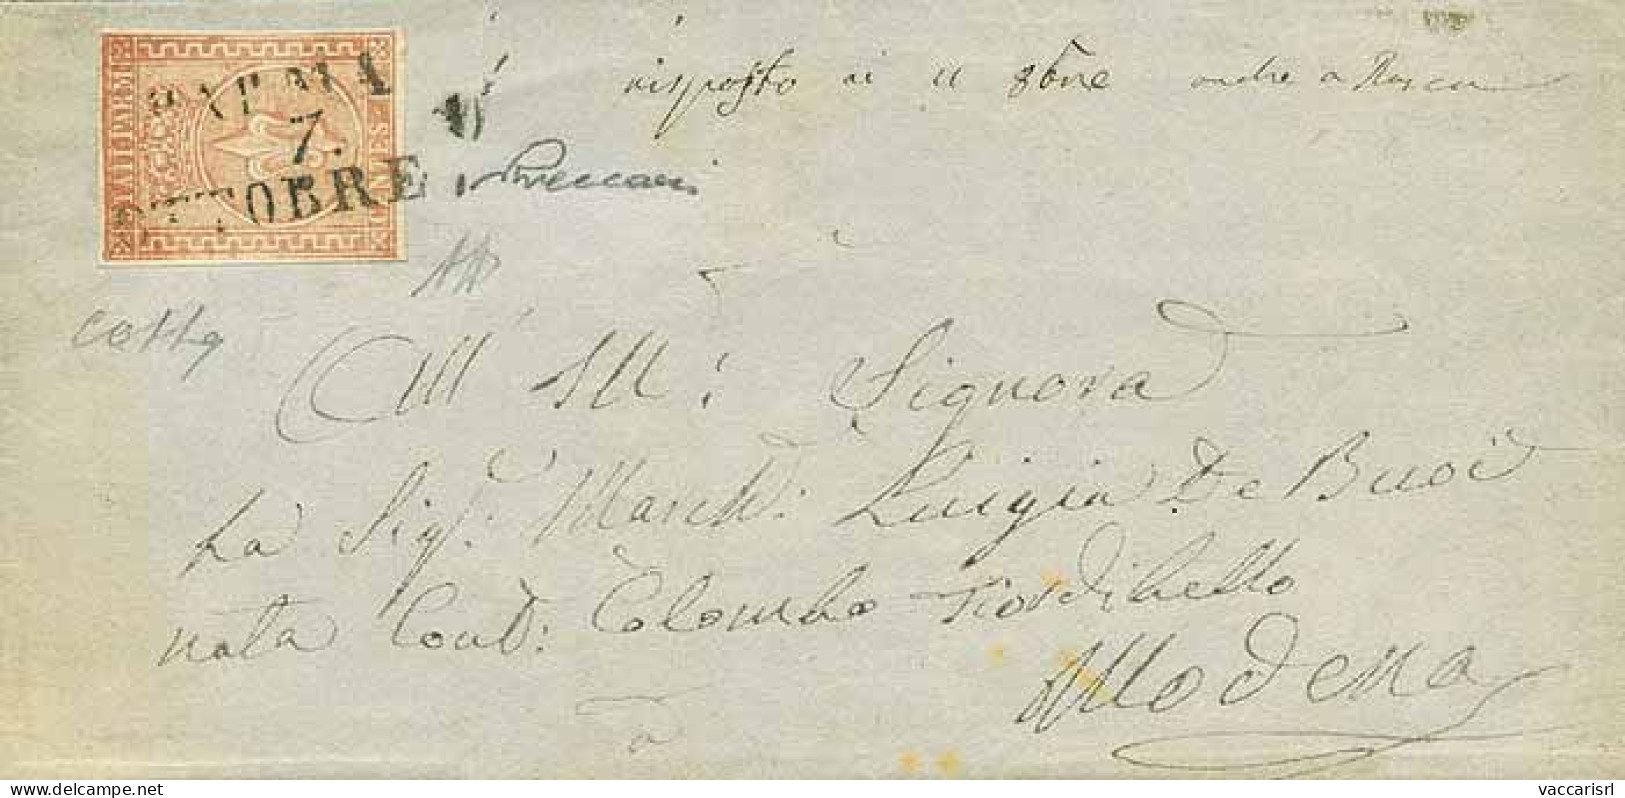 risposto ai 11 8bre andre a
STATI PARM
PARMA
7.
OTTOBRE
All' Ill: Signora
La Sigr. March: Luigia De Buoi
nata Cont: Colombo Fiordibello
Modena
a
vaccarisrl